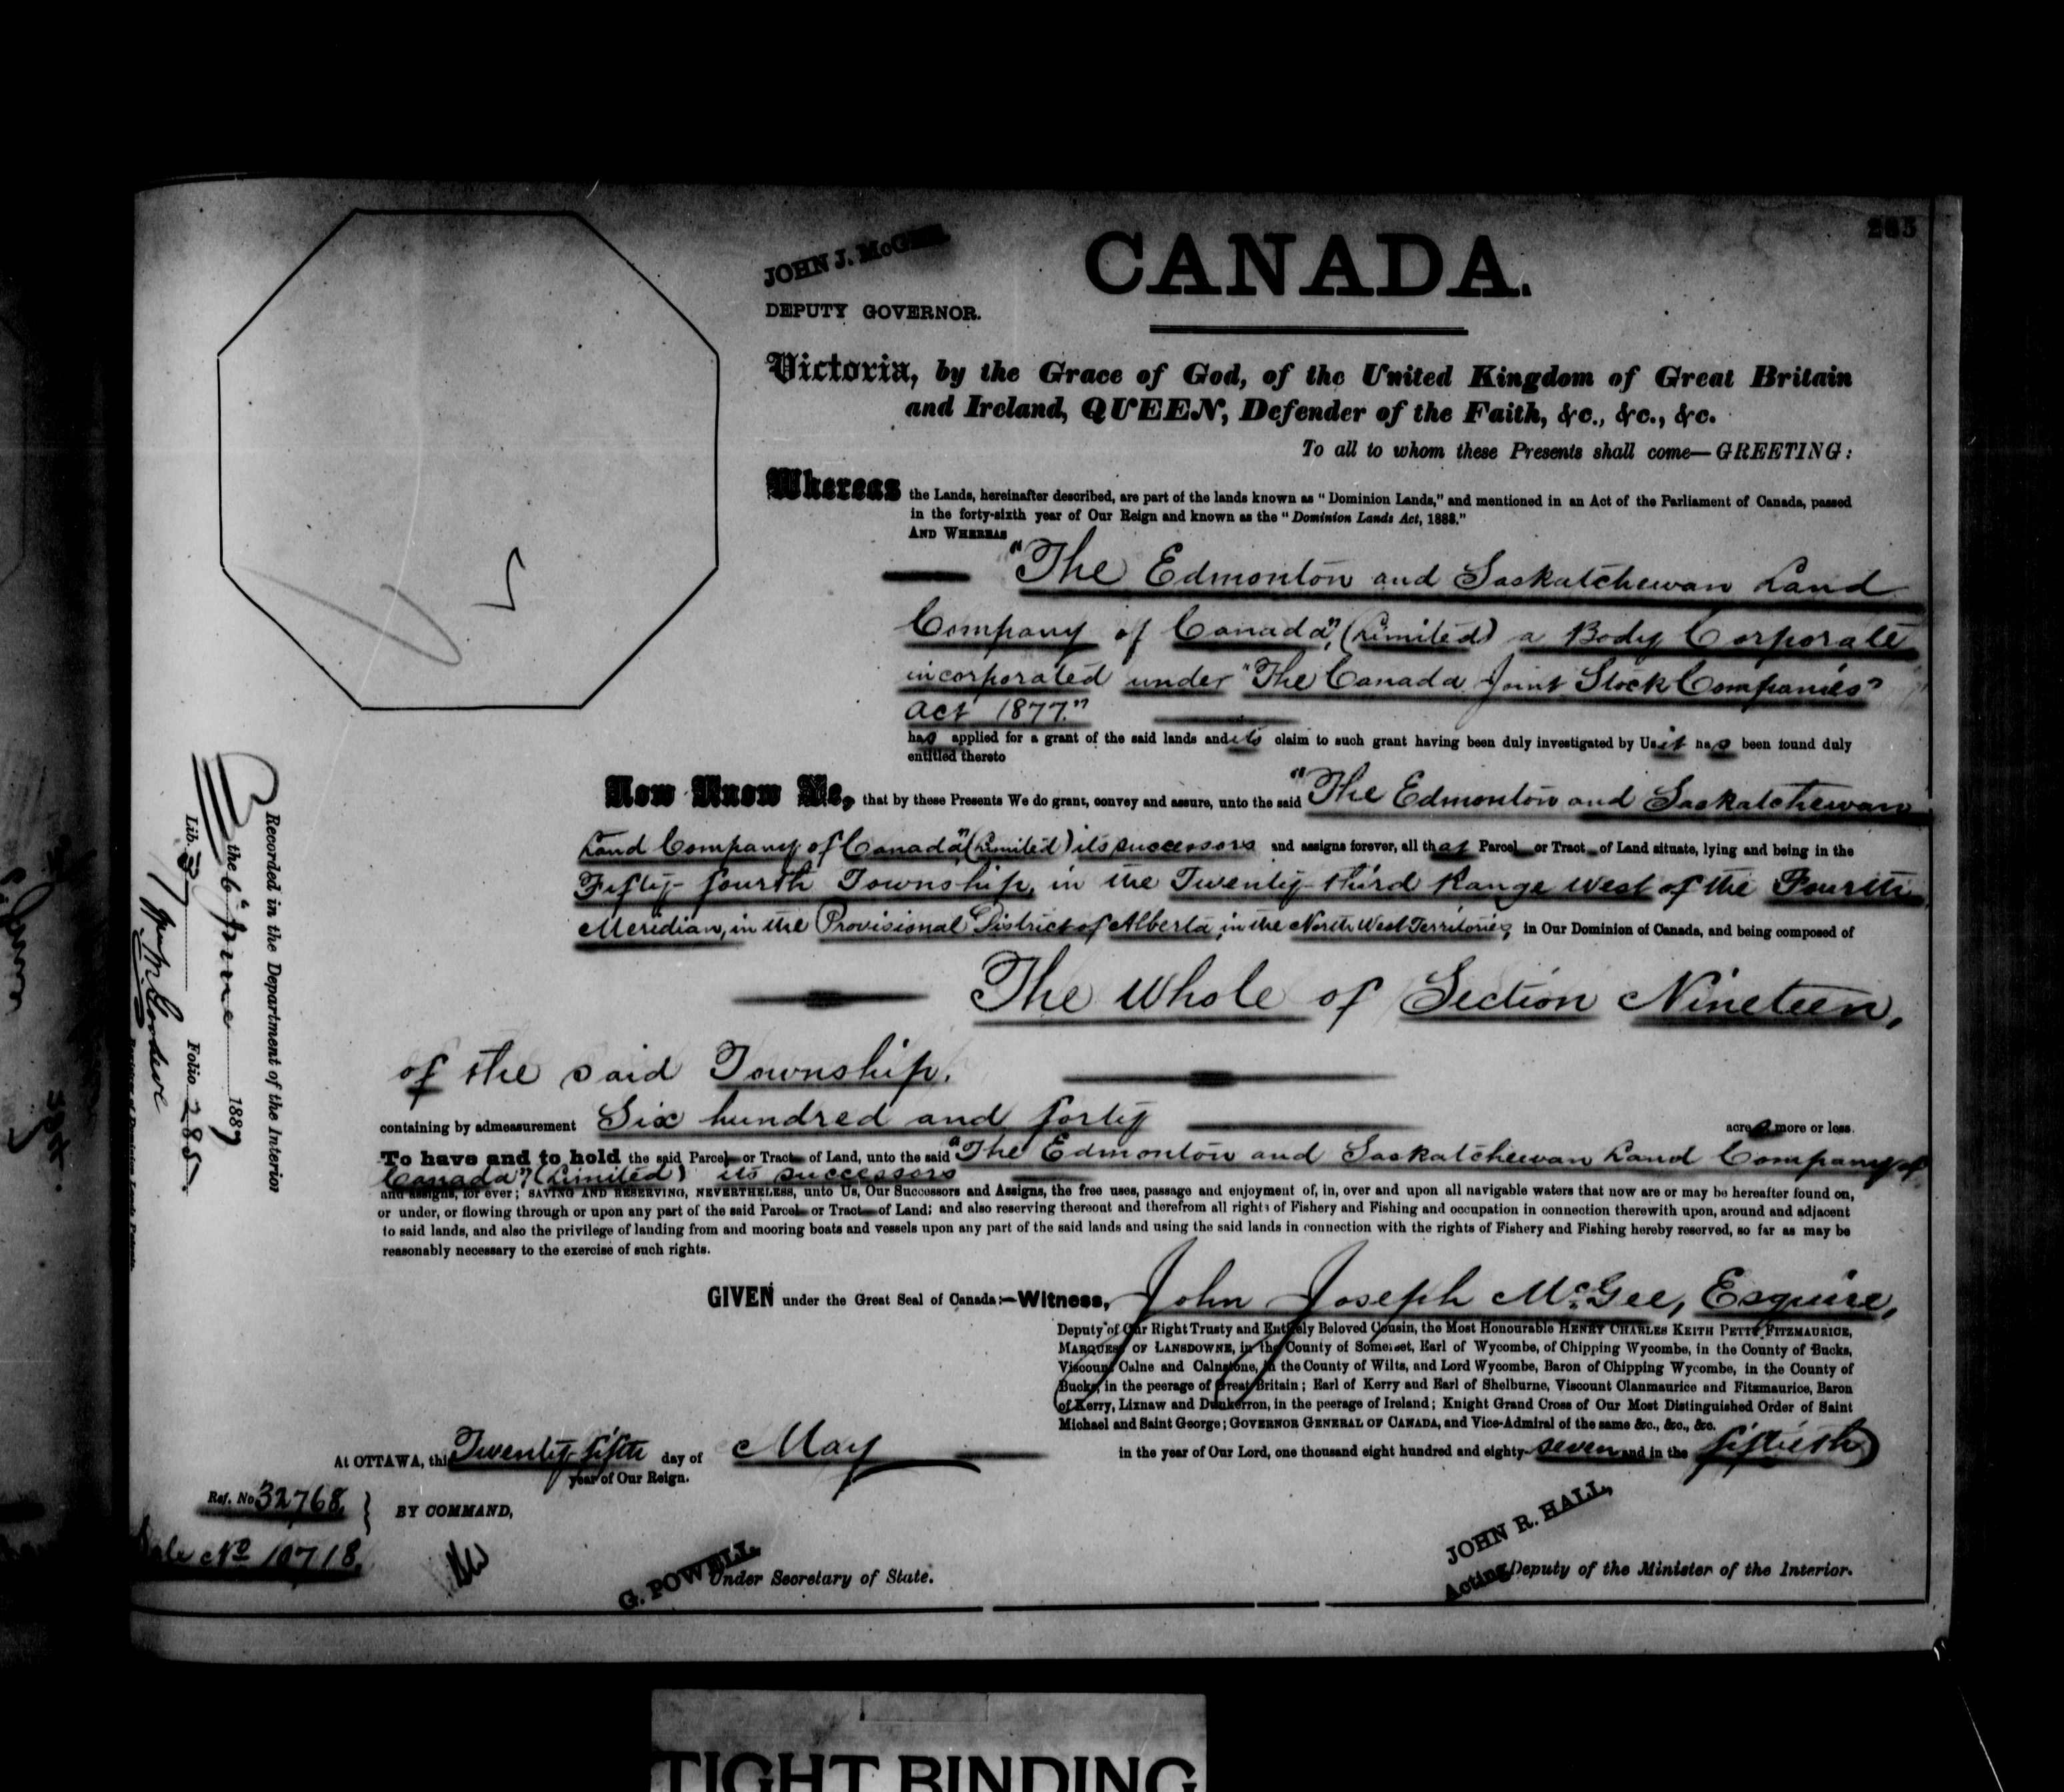 285
JOHN J. McGEE,
DEPUTY GOVERNOR.
CANADA.
Victoria, by the Grace of God, of the United Kingdom of Great Britain
and Ireland, QUEEN, Defender of the Faith, &c., &c., &c.
To all to whom these Presents shall come—GREETING:
Whereas the Lands, hereinafter described, are part of the lands known as "Dominion Lands," and mentioned in an Act of the Parliament of Canada, passed
in the forty-sixth year of Our Reign and known as the "Dominion Lands Act, 1883."
AND WHEREAS
"The Edmonton and Saskatchewan Land
Company of Canada", (Limited) a Body Corporate
incorporated under "The Canada Joint Stock Companies"
Act 1877."
has applied for a grant of the said lands and its claim to such grant having been duly investigated by Us it has been found duly
entitled thereto
Now Know Ye, that by these Presents We do grant, convey and assure, unto the said "The Edmonton and Saskatchewan
Land Company of Canada" (Limited) its successors and assigns forever, all that Parcel or Tract of Land situate, lying and being in the
Fifty-fourth Township, in the Twenty-third Range West of the Fourth
Meridian, in the Provisional District of Alberta, in the North West Territories, in Our Dominion of Canada, and being composed of
The Whole of Section Nineteen,
of the said Township.
containing by admeasurement Six hundred and forty acres more or less.
To have and to hold the said Parcel or Tract of Land, unto the said "The Edmonton and Saskatchewan Land Company of
Canada", (Limited) its successors
and assigns, for ever; SAVING AND RESERVING, NEVERTHELESS, unto Us, Our Successors and Assigns, the free uses, passage and enjoyment of, in, over and upon all navigable waters that now are or may be hereafter found on,
or under, or flowing through or upon any part of the said Parcel or Tract of Land; and also reserving thereout and therefrom all rights of Fishery and Fishing and occupation in connection therewith upon, around and adjacent
to said lands, and also the privilege of landing from and mooring boats and vessels upon any part of the said lands and using the said lands in connection with the rights of Fishery and Fishing hereby reserved, so far as may be
reasonably necessary to the exercise of such rights.
GIVEN under the Great Seal of Canada:—Witness, John Joseph McGee, Esquire,
Deputy of Our Right Trusty and Entirely Beloved Cousin, the Most Honourable HENRY CHARLES KEITH PETTY FITZMAURICE,
MARQUESS OF LANSDOWNE, in the County of Somerset, Earl of Wycombe, of Chipping Wycombe, in the County of Bucks,
Viscount Calne and Calnstone, in the County of Wilts, and Lord Wycombe, Baron of Chipping Wycombe, in the County of
Bucks, in the peerage of Great Britain; Earl of Kerry and Earl of Shelburne, Viscount Clanmaurice and Fitzmaurice, Baron
of Kerry, Lixnaw and Dunkerron, in the peerage of Ireland; Knight Grand Cross of Our Most Distinguished Order of Saint
Michael and Saint George; GOVERNOR GENERAL OF CANADA, and Vice-Admiral of the same &c., &c., &c.
At OTTAWA, this Twenty-fifth day of May in the year of Our Lord, one thousand eight hundred and eighty-seven and in the fiftieth
year of Our Reign.
Ref. No 32768.
BY COMMAND,
Sale No 10718.
G. POWELL,
Under Secretary of State.
JOHN R. HALL,
Acting Deputy of the Minister of the Interior.
Recorded in the Department of the Interior
the 6th June 1887
Lib. 37 Folio 285
Registrar of Dominion Lands Patents
TIGHT BINDING